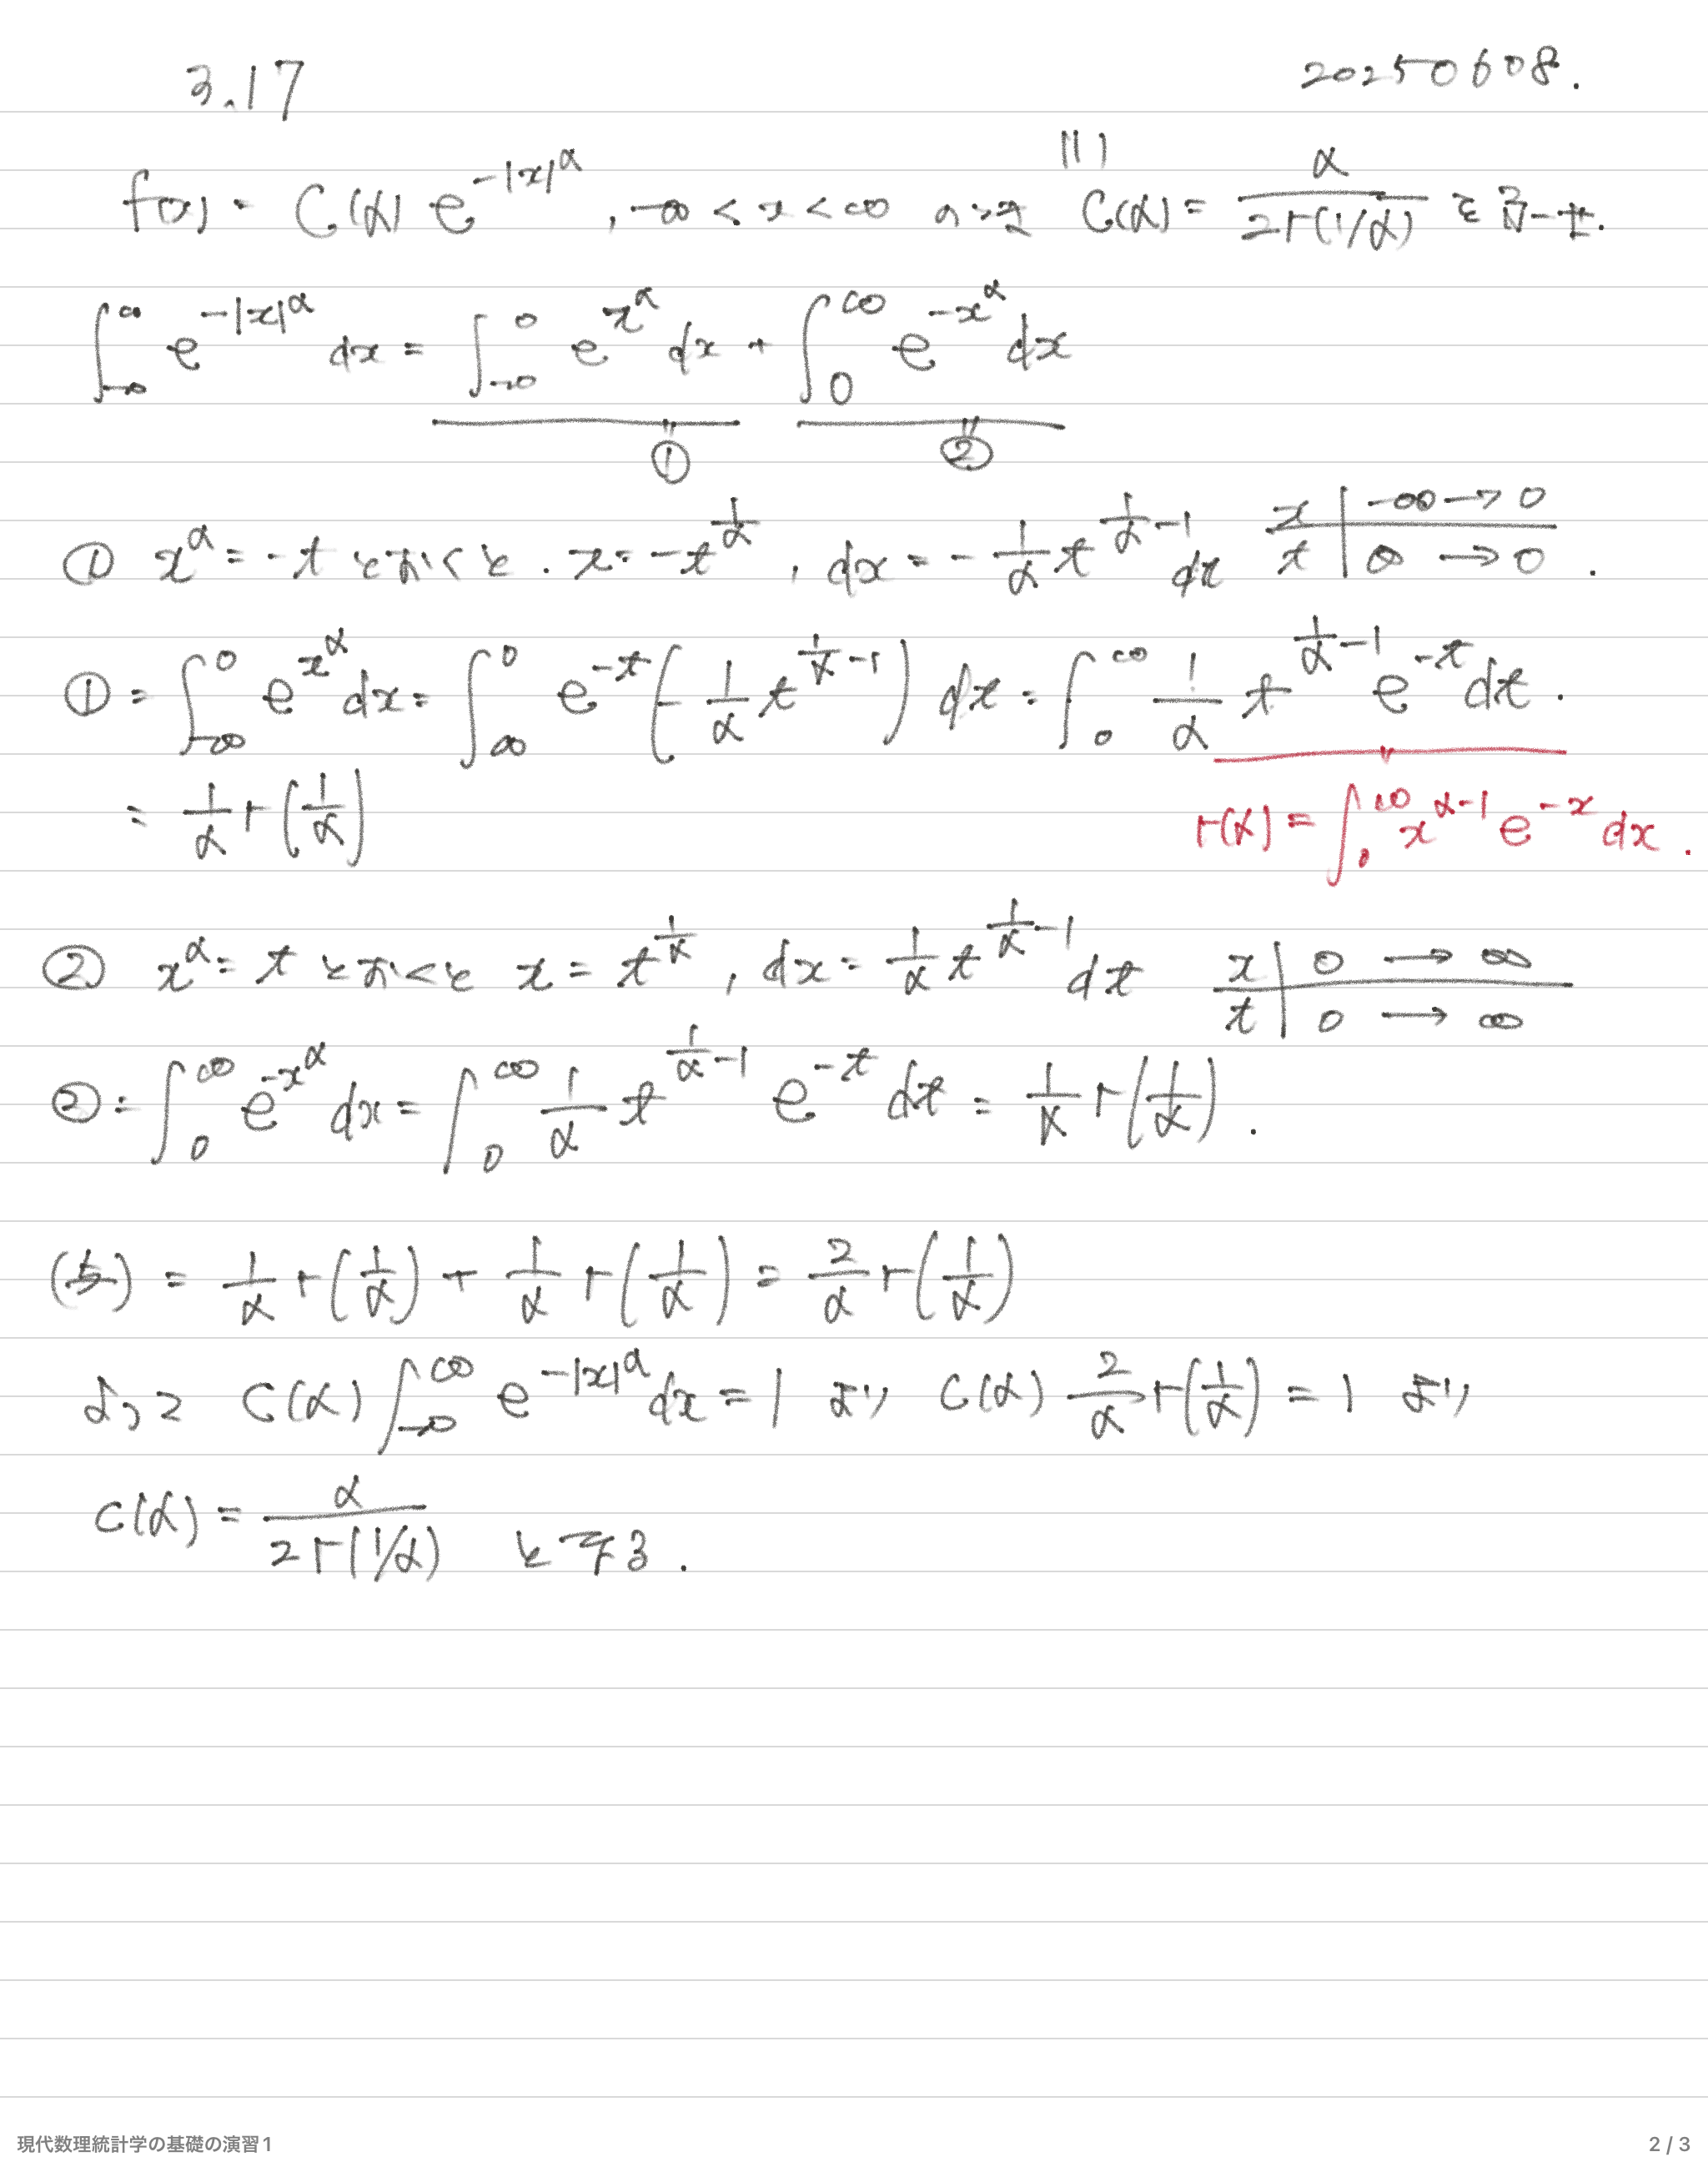 3.17 20250608.
(1)
f(x) = C(α) e^{-|x|^α}, -∞ < x < ∞ のとき C(α) = α/(2Γ(1/α)) を示せ.
∫_{-∞}^{∞} e^{-|x|^α} dx = ∫_{-∞}^{0} e^{x^α} dx + ∫_{0}^{∞} e^{-x^α} dx
① ②
① x^α = -t とおくと. x = -t^{1/α}, dx = -1/α t^{1/α-1} dt x | -∞ → 0
t | ∞ → 0 .
① = ∫_{-∞}^{0} e^{x^α} dx = ∫_{∞}^{0} e^{-t} (-1/α t^{1/α-1}) dt = ∫_{0}^{∞} 1/α t^{1/α-1} e^{-t} dt .
= 1/α Γ(1/α) Γ(α) = ∫_{0}^{∞} x^{α-1} e^{-x} dx .
② x^α = t とおくと x = t^{1/α}, dx = 1/α t^{1/α-1} dt x | 0 → ∞
t | 0 → ∞
② = ∫_{0}^{∞} e^{-x^α} dx = ∫_{0}^{∞} 1/α t^{1/α-1} e^{-t} dt = 1/α Γ(1/α) .
(与) = 1/α Γ(1/α) + 1/α Γ(1/α) = 2/α Γ(1/α)
よって C(α) ∫_{-∞}^{∞} e^{-|x|^α} dx = 1 より C(α) 2/α Γ(1/α) = 1 より
C(α) = α/(2Γ(1/α)) となる .
現代数理統計学の基礎の演習1 2 / 3